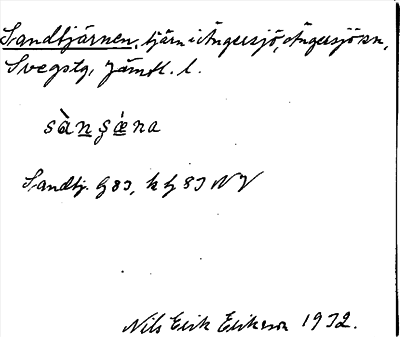 Sandtjärnen, tjärn i Ängersjö, Ängersjö sn,
Svegstg, Jämtl. l.
sànʂæ̀na
Sandtj. G 83, k h 83 NV
Nils Erik Erikson 1932.